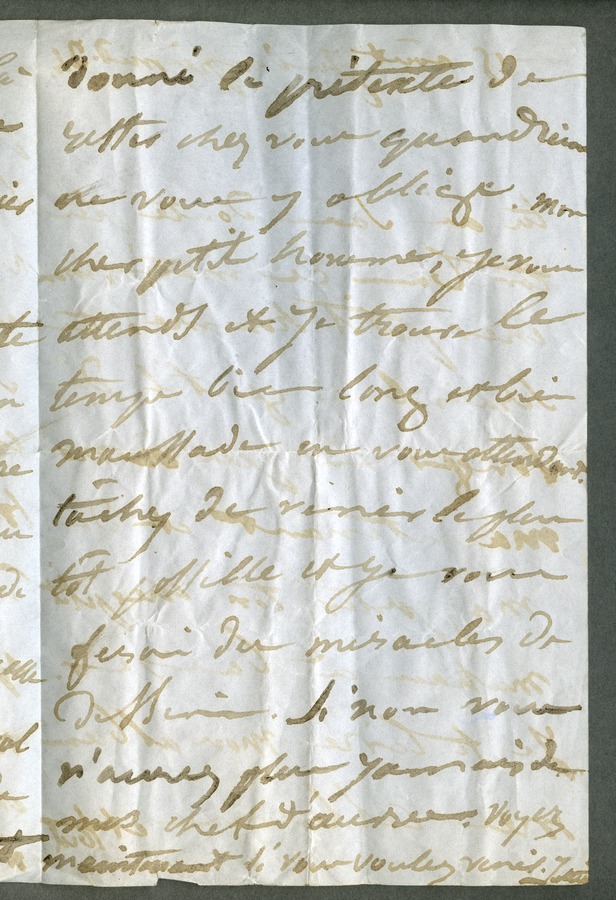 donné le prétexte de
rester chez vous quand rien
ne vous y obblige. mon
cher petit homme, je vous
attends et je trouve le
temps bien long et bien
maussade en vous attendant.
tâchez de venir le plus
tôt possible et je vous
ferai des miracles de
dessin. Si non vous
n'aurez plus jamais de
mes chef d'œuvre. Voyez
maintenant si vous voulez venir. Juliette